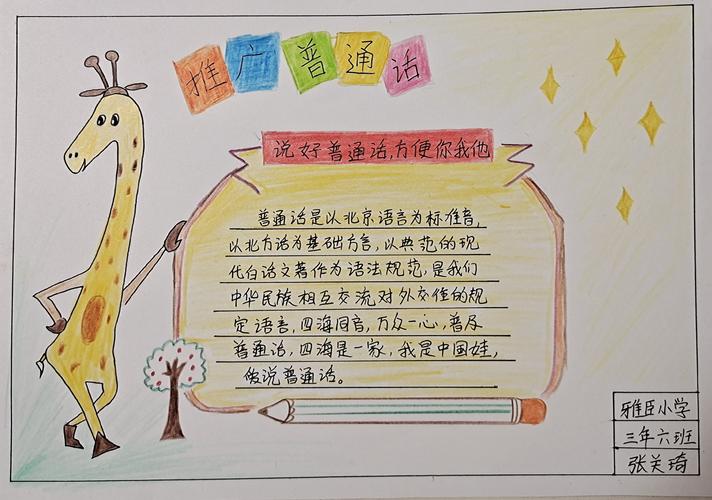 推广普通话
说好普通话,方便你我他
普通话是以北京语言为标准音,
以北方话为基础方言,以典范的现
代白话文著作为语法规范,是我们
中华民族相互交流对外交往的规
定语言,四海同音,万众一心,普及
普通话,四海是一家,我是中国娃,
做说普通话。
雅臣小学
三年六班
张关琦